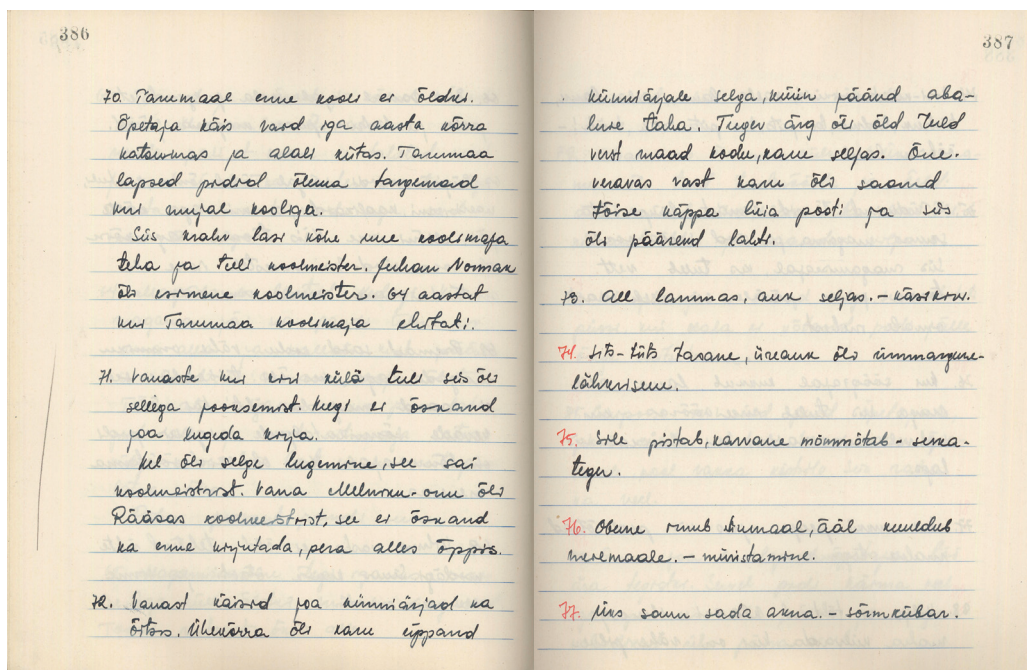 386
70. Tammaal enne kooli es õldki.
Õpetaja käis vard iga aasta kõrra
katsumas ja alali kiitas. Tammaa
lapsed pidid õlema targemad
kui mujal kooliga.
Siis krahv lasi kõhe uue koolimaja
teha ja tuli koolmeister. Juhan Norman
õli esimene koolmeister. 64 aastat
kui Tammaa koolimaja ehitati.
71. Vanaste kui kiri külä tuli siis õli
sellega jooksemist. Keegi es õsnand
joa lugeda kirja.
Kel õli selge lugemine, see sai
koolmeistrist. Vana Melniku-onu õli
Rääsas koolmeistrist, see es õsnand
ka enne kirjutada, pera alles õppis.
72. Vanast käisid joa künniärjad ka
õitsis. Ühekõrra õli karu üppand
387
künniärjale selga, küin päänd aba-
luse taha. Tugev ärg õli õld tuld
verst maad kodu, karu seljas. Õue-
veravas vast karu õli saand
tõise käppa lüia posti ja siis
õli pääsend lahti.
73. All lammas, auk seljas. - käsikivi.
74. Sits-täts tasane, üreauk õli ümmargune.
lähkrisem.
75. Sile pistab, karvane mõmmõtab -
teger.
76. Obene irnub Iiumaal, ääl kuuldub
meremaale. - müristamine.
77. Üks saun sada akna. - sõrmkübar.